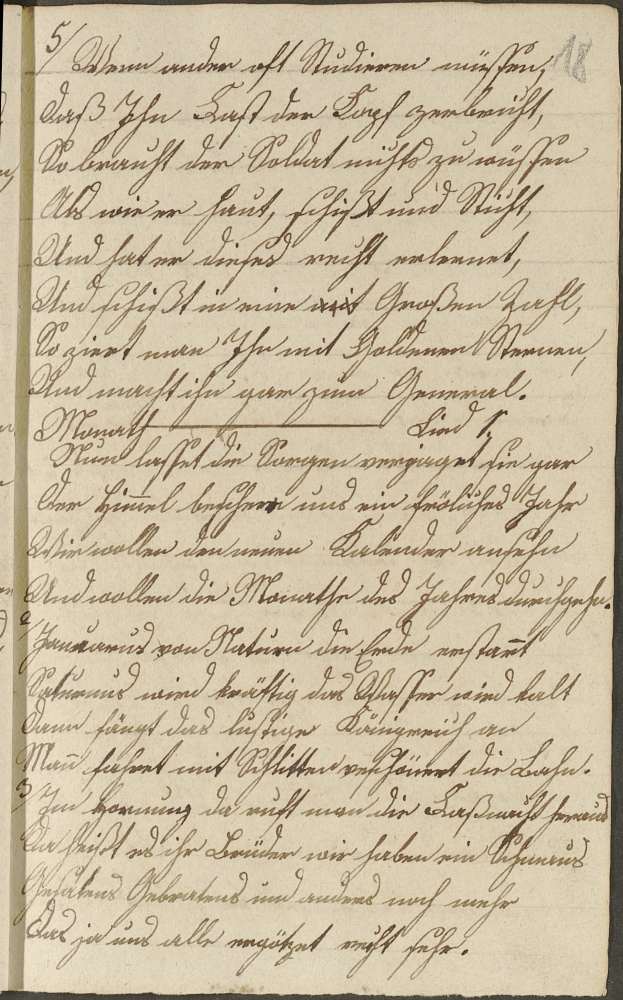 18
5/ Wenn ander oft Studieren müssen,
Daß Ihn Fast der Kopf zerbricht,
So braucht der Soldat nichts zu wüssen
Als wie er haut, schießt und Sticht,
Und hat er dieses recht erlernet,
Und schießt in eine mit Großen Zahl,
So ziert man Ihn mit Goldenen Sternen,
Und macht ihn gar zum General.
Monath Lied 1.
Nun lasset die Sorgen verjaget sie gar
Der Himel bescher uns ein fröliches Jahr
Wir wollen den neuen Kalender ansehn
Und wollen die Monathe des Jahres durchgehn.
2/ Januarus von Naturn die Erde erstarrt
Saturnus wird kräftig das Wasser wird kalt
Dann fängt das lustige Königreich an
Man fahret mit Schlitten verschönert die Bahn.
3/ Im Hornung da ruft man die Faßnacht heraus
Da heißt es ihr Brüder wir haben ein Schmaus
Gesatens Gebratens und anders noch mehr
Das ja uns alle ergötzet recht sehr.